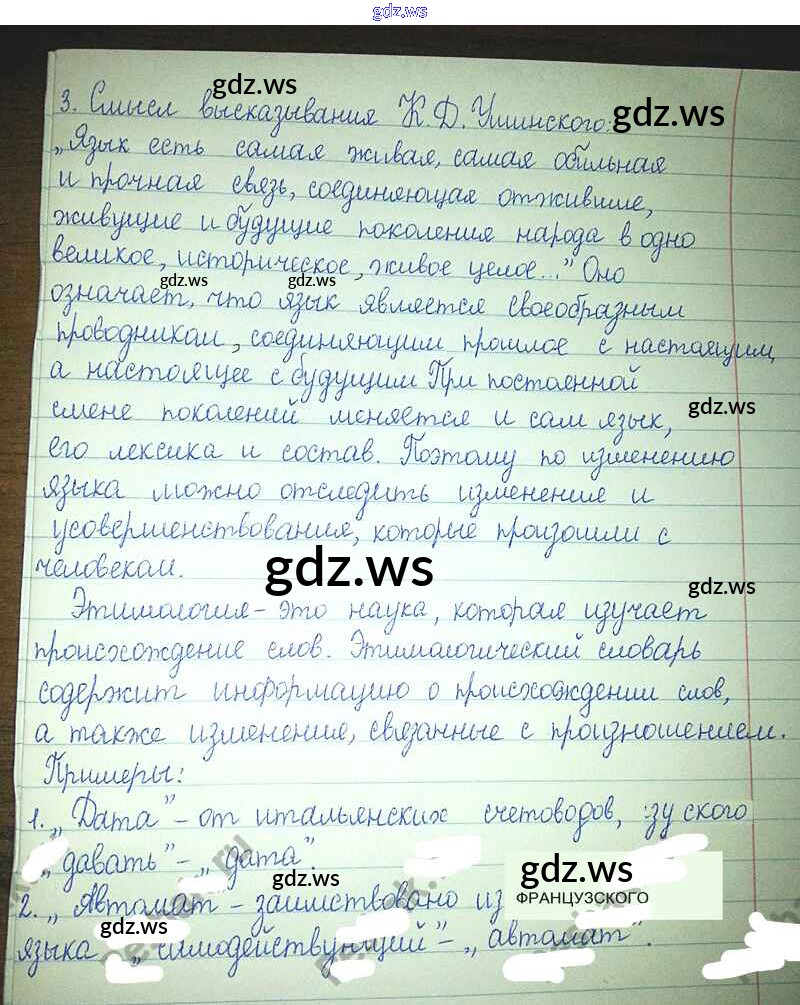 gdz.ws
gdz.ws
gdz.ws
3. Смысл высказывания К.Д.Ушинского:
„Язык есть самая живая, самая обильная
и прочная связь, соединяющая отжившие,
живущие и будущие поколения народа в одно
великое, историческое, живое целое..." Оно
gdz.ws gdz.ws
означает, что язык является своеобразным
проводником, соединяющим прошлое с настоящим,
а настоящее с будущим При постоянной
gdz.ws
смене поколений меняется и сам язык,
его лексика и состав. Поэтому по изменению
языка можно отследить изменения и
усовершенствования, которые произошли с
человеком.
gdz.ws
gdz.ws
Этимология – это наука, которая изучает
происхождение слов. Этимологический словарь
содержит информацию о происхождении слов,
а также изменения, связанные с произношением.
Примеры:
1. „Дата" – от итальянских счетоводов, ского
„давать" – „дата".
gdz.ws
gdz.ws
2. „Автомат – заимствовано из ФРАНЦУЗСКОГО
gdz.ws
языка „ – „автомат".